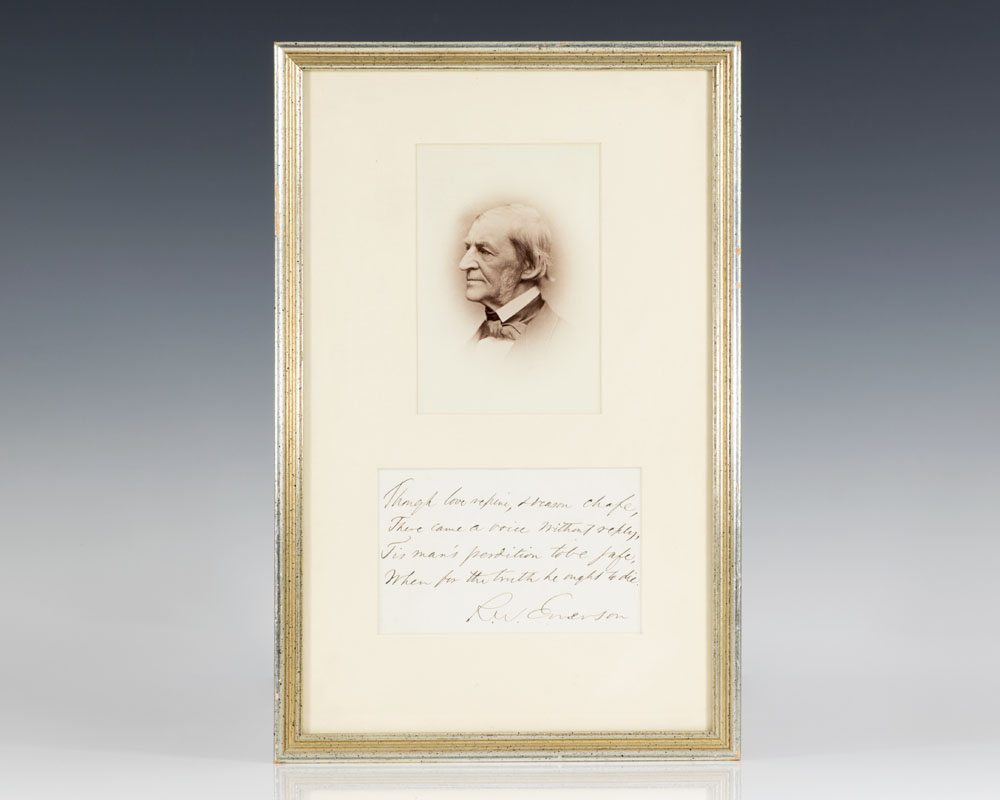 Though love repine, & reason chafe,
There came a voice without reply,
Tis man's perdition to be safe,
When for the truth he ought to die.
R.W. Emerson